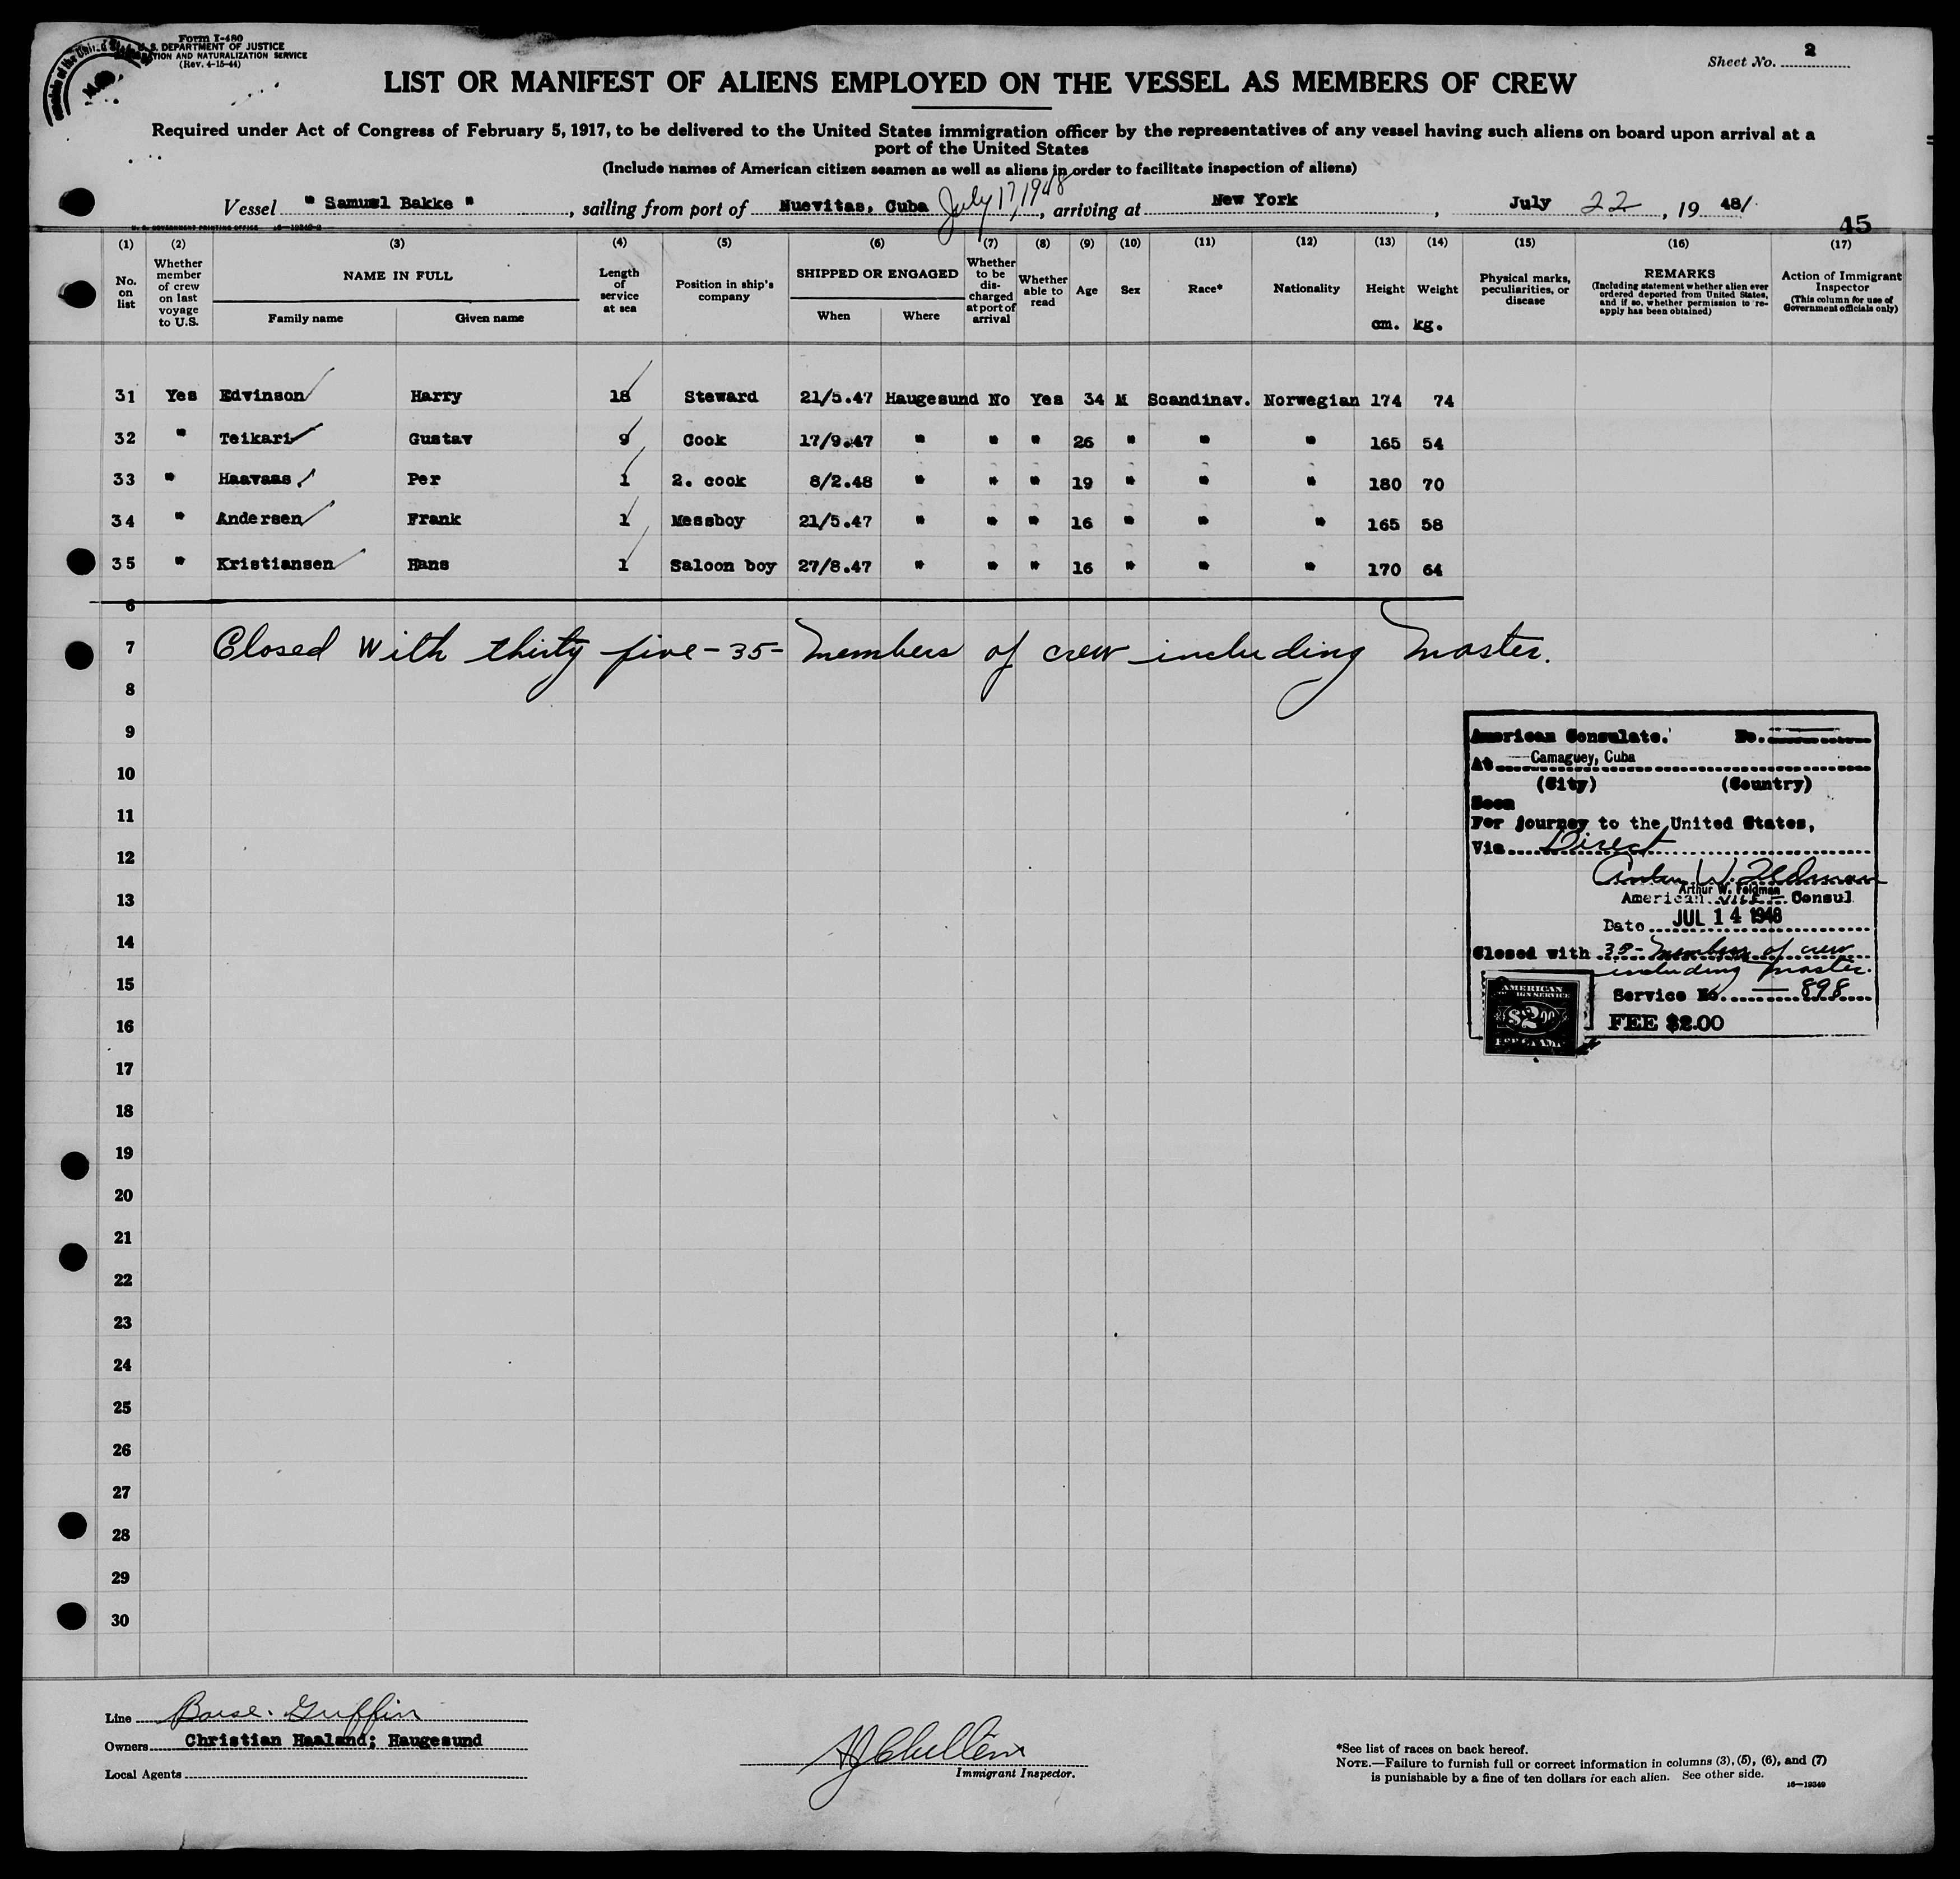 Form I-480
U. S. DEPARTMENT OF JUSTICE
IMMIGRATION AND NATURALIZATION SERVICE
(Rev. 4-15-44)
Sheet No. 2
LIST OR MANIFEST OF ALIENS EMPLOYED ON THE VESSEL AS MEMBERS OF CREW
Required under Act of Congress of February 5, 1917, to be delivered to the United States immigration officer by the representatives of any vessel having such aliens on board upon arrival at a
port of the United States
(Include names of American citizen seamen as well as aliens in order to facilitate inspection of aliens)
Vessel " Samuel Bakke ", sailing from port of Nuevitas, Cuba July 17, 1948, arriving at New York, July 22, 1948
U. S. GOVERNMENT PRINTING OFFICE 16-19349-2
45
(1) (2) (3) (4) (5) (6) (7) (8) (9) (10) (11) (12) (13) (14) (15) (16) (17)
No. on list
Whether member of crew on last voyage to U.S.
NAME IN FULL
Family name Given name
Length of service at sea
Position in ship's company
SHIPPED OR ENGAGED
When Where
Whether to be discharged at port of arrival
Whether able to read
Age
Sex
Race*
Nationality
Height cm.
Weight kg.
Physical marks, peculiarities, or disease
REMARKS
(Including statement whether alien ever ordered deported from United States, and if so, whether permission to reapply has been obtained)
Action of Immigrant Inspector
(This column for use of Government officials only)
31 Yes Edvinson Harry 18 Steward 21/5.47 Haugesund No Yes 34 M Scandinav. Norwegian 174 74
32 " Teikari Gustav 9 Cook 17/9.47 " " " 26 " " " 165 54
33 " Haavaas Per 1 2. cook 8/2.48 " " " 19 " " " 180 70
34 " Andersen Frank 1 Messboy 21/5.47 " " " 16 " " " 165 58
35 " Kristiansen Hans 1 Saloon boy 27/8.47 " " " 16 " " " 170 64
6
7 Closed with thirty five - 35 - members of crew including Master.
8
9
10
11
12
13
14
15
16
17
18
19
20
21
22
23
24
25
26
27
28
29
30
American Consulate. No.
At Camaguey, Cuba
(City) (Country)
Seen
For journey to the United States,
Via Direct
Arthur W. Feldman
Arthur W. Feldman
American Vice Consul
Date JUL 14 1948
Closed with 35- members of crew
including Master.
Service No. 898
FEE $2.00
AMERICAN
FOREIGN SERVICE
$2.00
FEE STAMP
Line Boise-Griffin
Owners Christian Haaland; Haugesund
Local Agents
Immigrant Inspector.
*See list of races on back hereof.
NOTE.—Failure to furnish full or correct information in columns (3), (5), (6), and (7)
is punishable by a fine of ten dollars for each alien. See other side.
16—19349